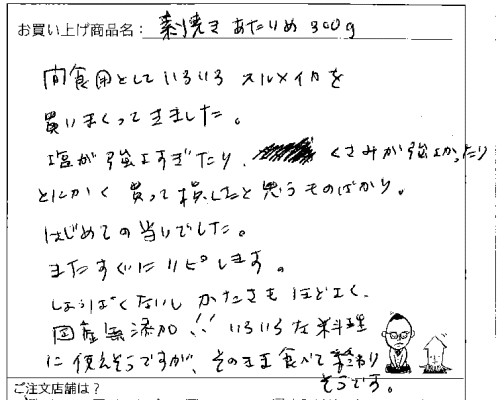 お買い上げ商品名： 素焼き あたりめ 300g
間食用としていろいろ スルメイカを
買いまくってきました。
塩が強すぎたり、 くさみが強かったり
とにかく 買って損したと思うものばかり。
はじめての当りでした。
またすぐにリピします。
しょうばくないし かたさも ほどよく、
国産無添加!! いろいろな料理
に使えそうですが、そのまま食べて終わり
そうです。
ご注文店舗は？